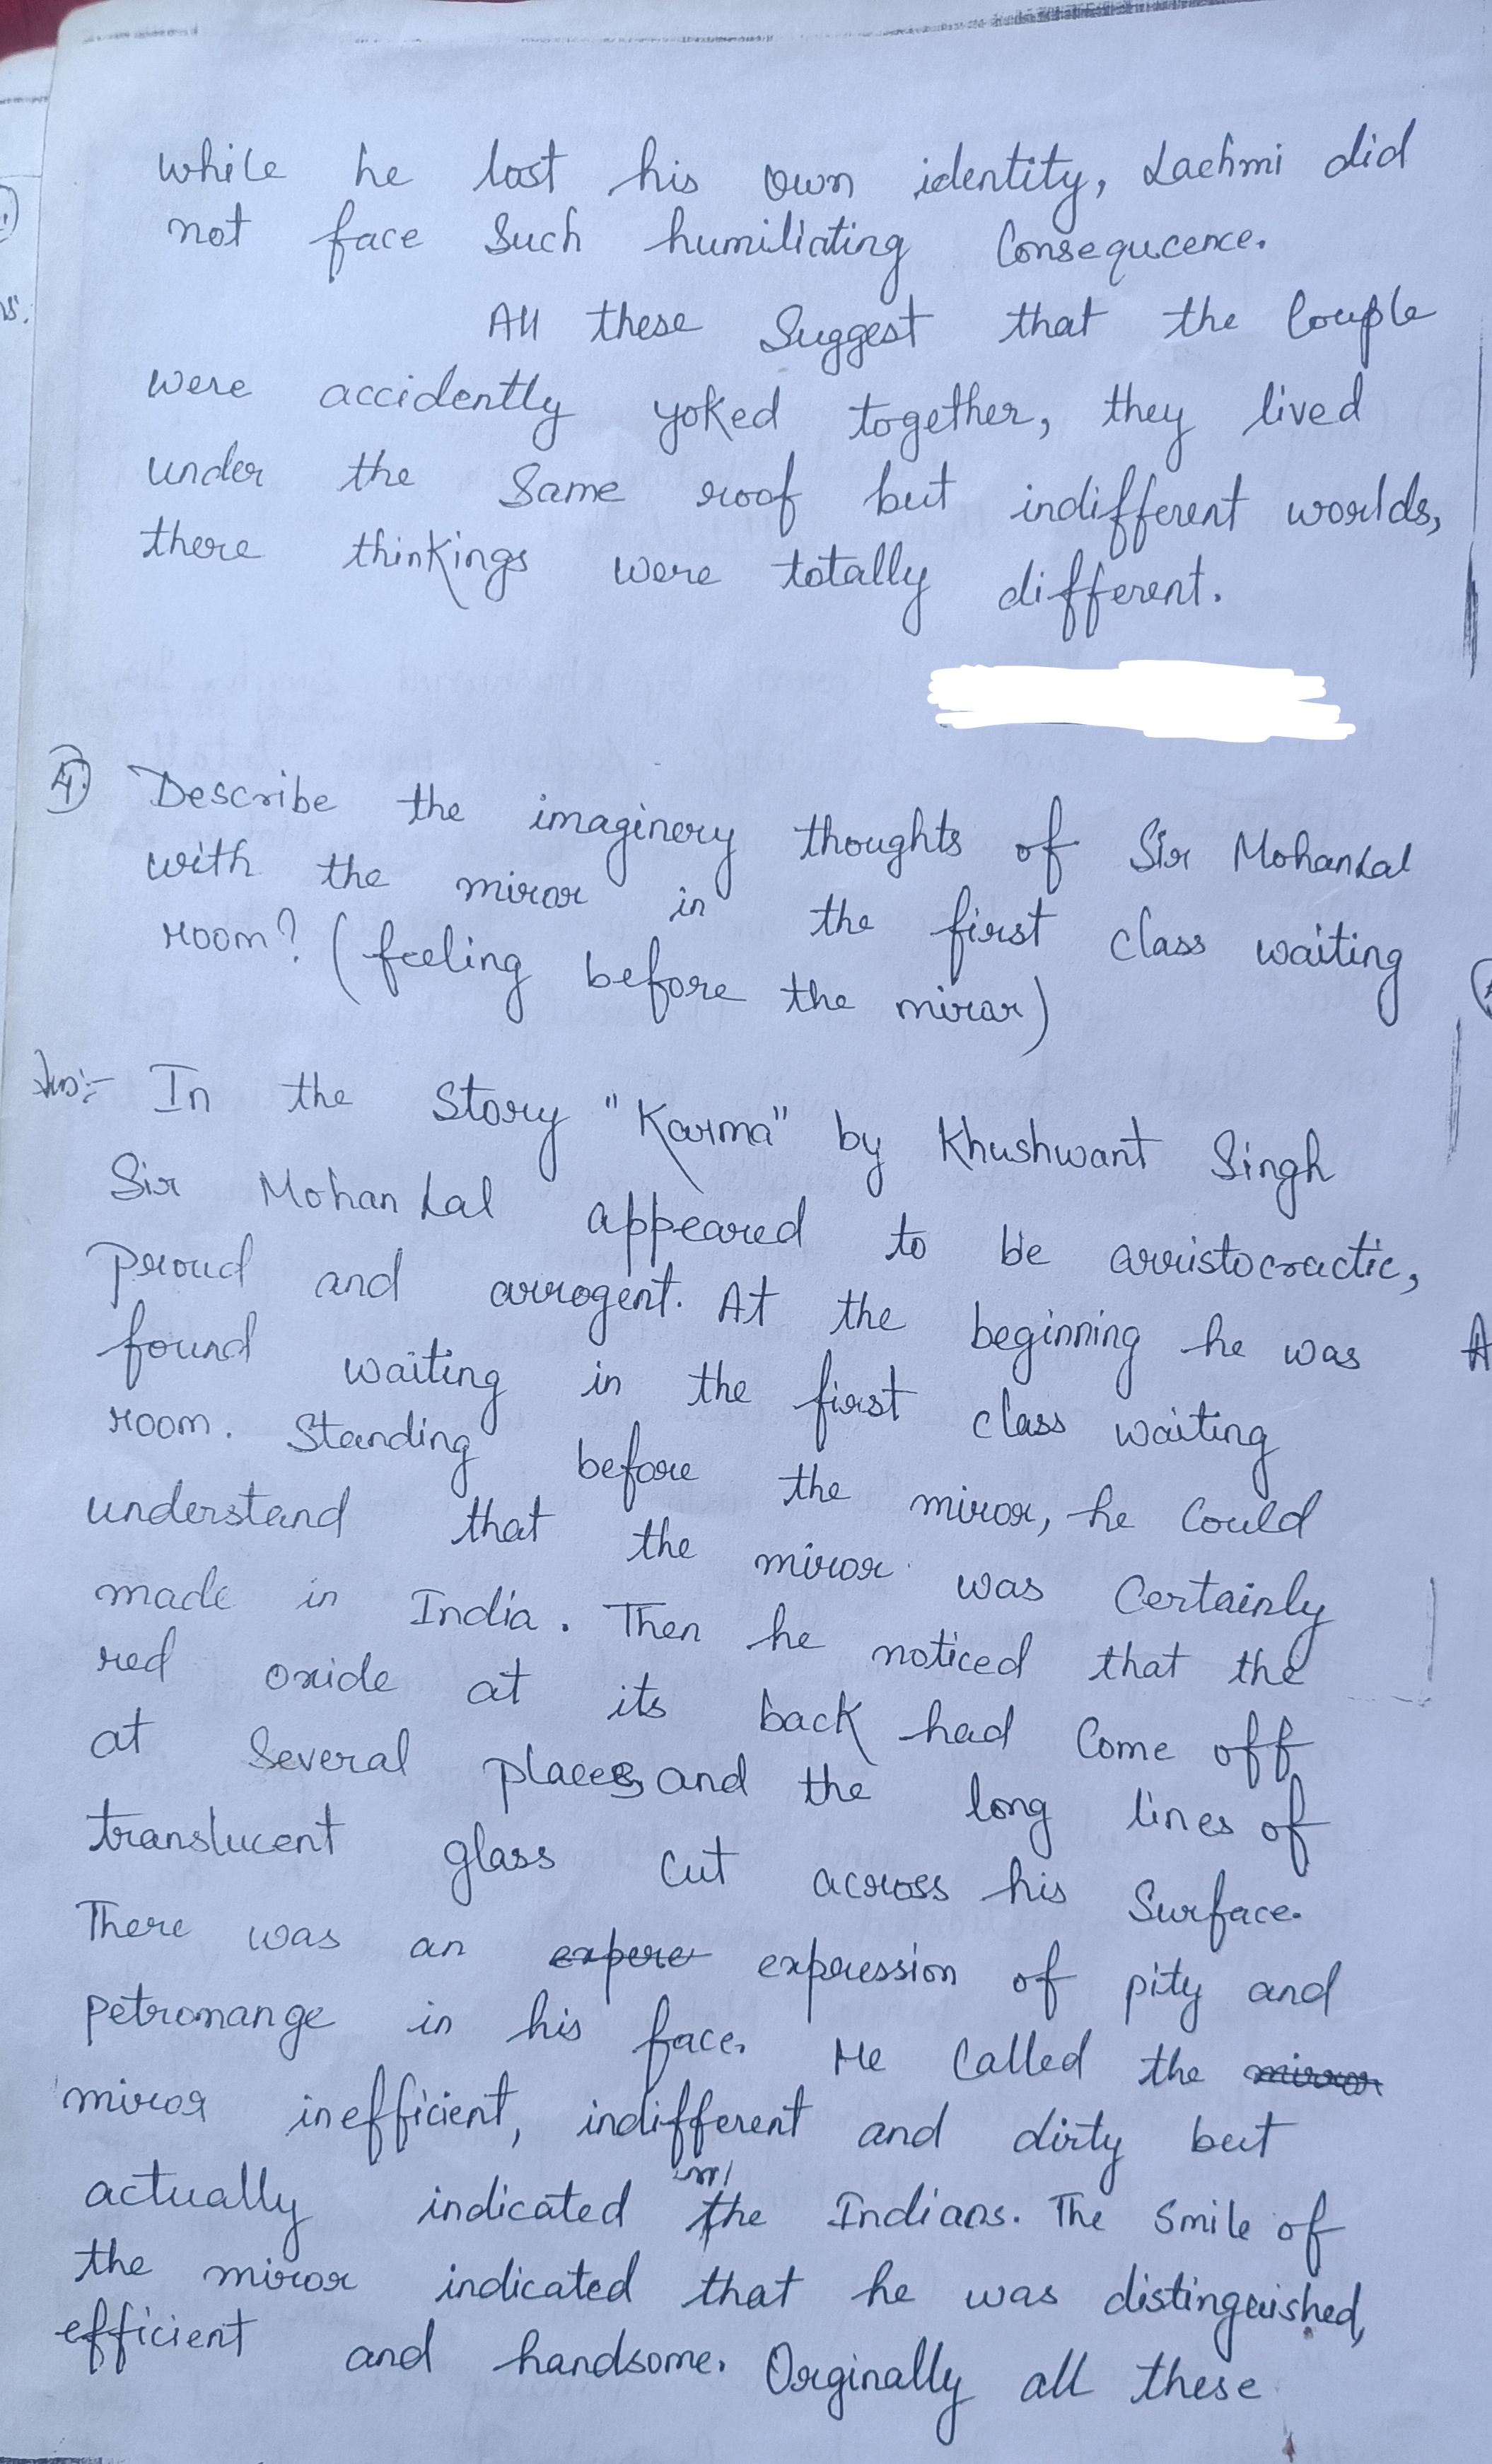 while he lost his own identity, Lachmi did
not face such humiliating Consequcence.
All these Suggest that the Couple
were accidently yoked together, they lived
under the Same roof but indifferent worlds,
there thinkings were totally different.
4. Describe the imaginery thoughts of Sir Mohan Lal
with the miror in the first class waiting
room? (feeling before the mirar)
Ans:- In the Story "Karma" by Khushwant Singh
Sir Mohan Lal appeared to be arristocractic,
proud and arrogent. At the beginning he was
found waiting in the first class waiting
room. Standing before the miror, he Could
understand that the miror was Certainly
made in India. Then he noticed that the
red oxide at its back had Come off
at Several places, and the long lines of
translucent glass cut across his Surface.
There was an expere expression of pity and
petromange in his face. He Called the mirror
miror inefficient, indifferent and dirty but
actually indicated the Indians. The Smile of
the miror indicated that he was distinguished,
efficient and handsome. Orginally all these